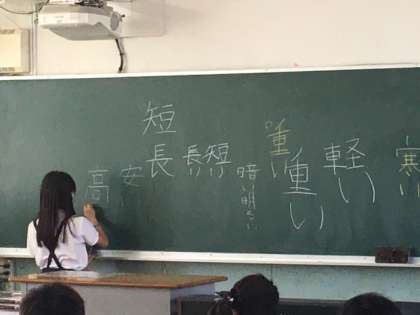 寒い
軽い
重い
重い
明るい
暗い
短い
長い
短
長
安
高